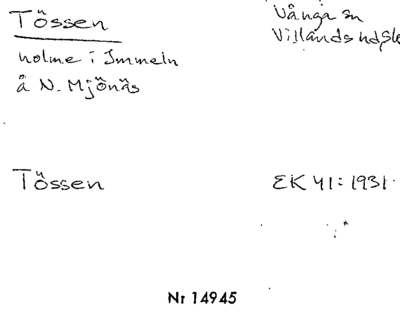 Tössen
Vånga sn
Villands hds
holme i Immeln
å N. Mjönäs
Tössen
EK 41: 1931
Nr 14945